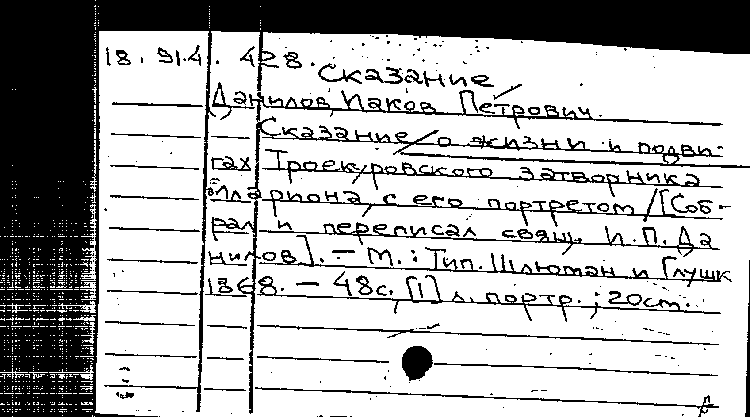 18. 91.4. 428.
Сказание
Данилов, Иаков Петрович.
Сказание о жизни и подви-
гах Троекуровского затворника
Илариона, с его портретом / [Соб-
рал и переписал свящ. И.П. Да
нилов]. – М.: Тип. Шлютман и Глушк
1868. – 48с., [1] л. портр.; 20см.